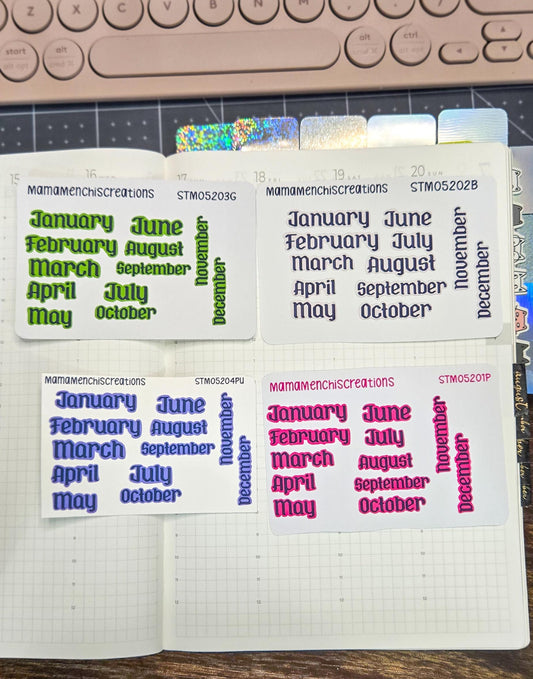 Z X C V B N M
start
alt opt
alt
cmd ⌘
alt
ctrl
15 16 17 18 19 20
MamaMenchisCreations STM05203G
January June
February August
March September
April July
May October
November
December
MamaMenchisCreations STM05202B
January June
February July
March August
April September
May October
November
December
MamaMenchisCreations STM05204PU
January June
February August
March September
April July
May October
November
December
MamaMenchisCreations STM05201P
January June
February July
March August
April September
May October
November
December
August